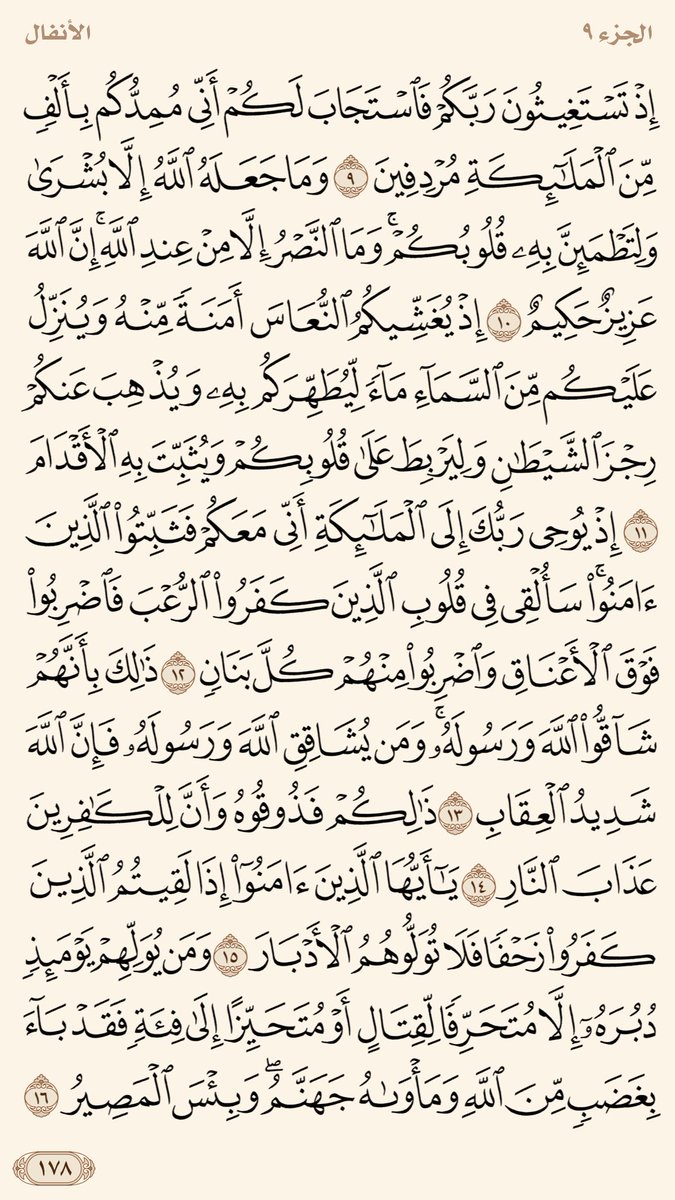 الجزء ٩ الأنفال
إِذْ تَسْتَغِيثُونَ رَبَّكُمْ فَٱسْتَجَابَ لَكُمْ أَنِّى مُمِدُّكُم بِأَلْفٍ
مِّنَ ٱلْمَلَٰٓئِكَةِ مُرْدِفِينَ ٩ وَمَا جَعَلَهُ ٱللَّهُ إِلَّا بُشْرَىٰ
وَلِتَطْمَئِنَّ بِهِۦ قُلُوبُكُمْ ۚ وَمَا ٱلنَّصْرُ إِلَّا مِنْ عِندِ ٱللَّهِ ۚ إِنَّ ٱللَّهَ
عَزِيزٌ حَكِيمٌ ١٠ إِذْ يُغَشِّيكُمُ ٱلنُّعَاسَ أَمَنَةً مِّنْهُ وَيُنَزِّلُ
عَلَيْكُم مِّنَ ٱلسَّمَآءِ مَآءً لِّيُطَهِّرَكُم بِهِۦ وَيُذْهِبَ عَنكُمْ
رِجْزَ ٱلشَّيْطَٰنِ وَلِيَرْبِطَ عَلَىٰ قُلُوبِكُمْ وَيُثَبِّتَ بِهِ ٱلْأَقْدَامَ
١١ إِذْ يُوحِى رَبُّكَ إِلَى ٱلْمَلَٰٓئِكَةِ أَنِّى مَعَكُمْ فَثَبِّتُوا۟ ٱلَّذِينَ
ءَامَنُوا۟ ۚ سَأُلْقِى فِى قُلُوبِ ٱلَّذِينَ كَفَرُوا۟ ٱلرُّعْبَ فَٱضْرِبُوا۟
فَوْقَ ٱلْأَعْنَاقِ وَٱضْرِبُوا۟ مِنْهُمْ كُلَّ بَنَانٍ ١٢ ذَٰلِكَ بِأَنَّهُمْ
شَآقُّوا۟ ٱللَّهَ وَرَسُولَهُۥ ۚ وَمَن يُشَاقِقِ ٱللَّهَ وَرَسُولَهُۥ فَإِنَّ ٱللَّهَ
شَدِيدُ ٱلْعِقَابِ ١٣ ذَٰلِكُمْ فَذُوقُوهُ وَأَنَّ لِلْكَٰفِرِينَ
عَذَابَ ٱلنَّارِ ١٤ يَٰٓأَيُّهَا ٱلَّذِينَ ءَامَنُوٓا۟ إِذَا لَقِيتُمُ ٱلَّذِينَ
كَفَرُوا۟ زَحْفًا فَلَا تُوَلُّوهُمُ ٱلْأَدْبَارَ ١٥ وَمَن يُوَلِّهِمْ يَوْمَئِذٍ
دُبُرَهُۥٓ إِلَّا مُتَحَرِّفًا لِّقِتَالٍ أَوْ مُتَحَيِّزًا إِلَىٰ فِئَةٍ فَقَدْ بَآءَ
بِغَضَبٍ مِّنَ ٱللَّهِ وَمَأْوَىٰهُ جَهَنَّمُ ۖ وَبِئْسَ ٱلْمَصِيرُ ١٦
١٧٨